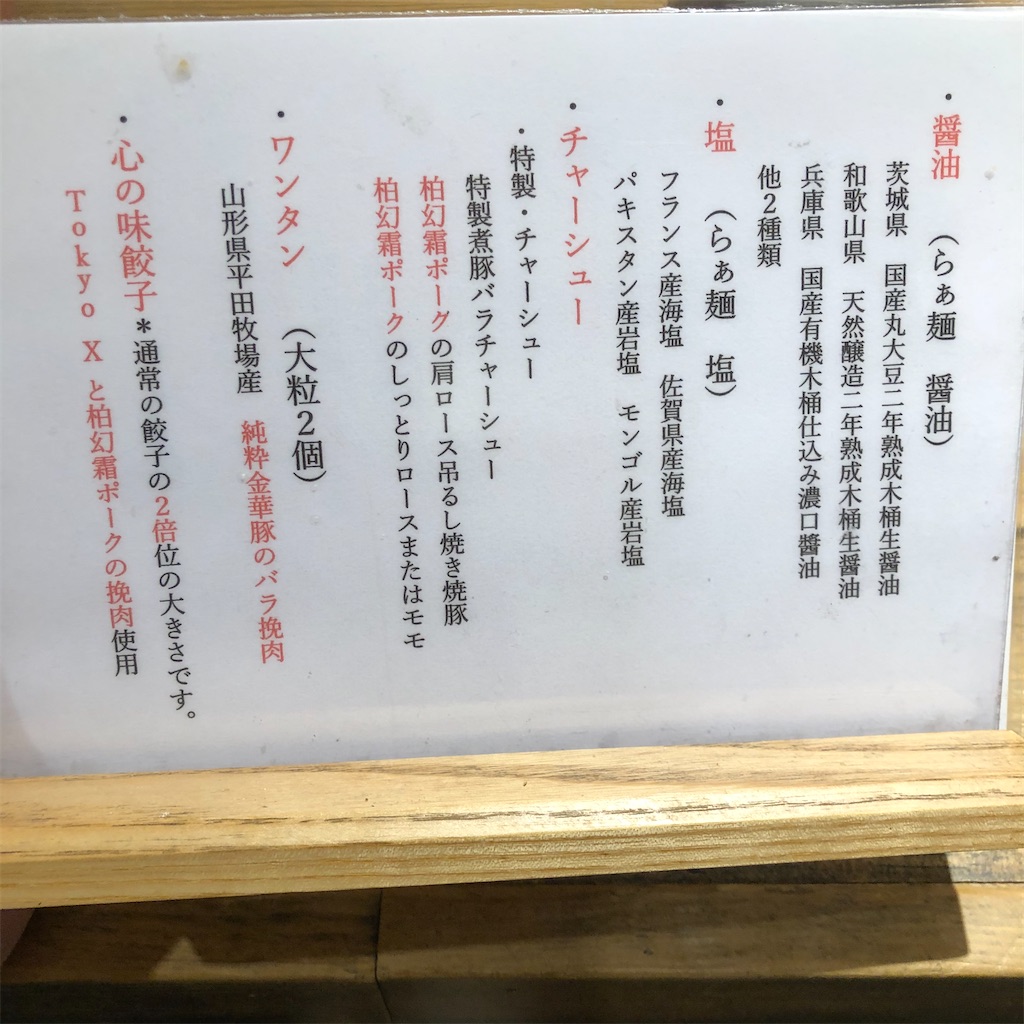 ・醤油 （らぁ麺 醤油）
茨城県 国産丸大豆二年熟成木桶生醤油
和歌山県 天然醸造二年熟成木桶生醤油
兵庫県 国産有機木桶仕込み濃口醬油
他2種類
・塩 （らぁ麺 塩）
フランス産海塩 佐賀県産海塩
パキスタン産岩塩 モンゴル産岩塩
・チャーシュー
・特製・チャーシュー
特製煮豚バラチャーシュー
柏幻霜ポークの肩ロース吊るし焼き焼豚
柏幻霜ポークのしっとりロースまたはモモ
・ワンタン （大粒2個）
山形県平田牧場産 純粋金華豚のバラ挽肉
・心の味餃子*通常の餃子の2倍位の大きさです。
Tokyo Xと柏幻霜ポークの挽肉使用